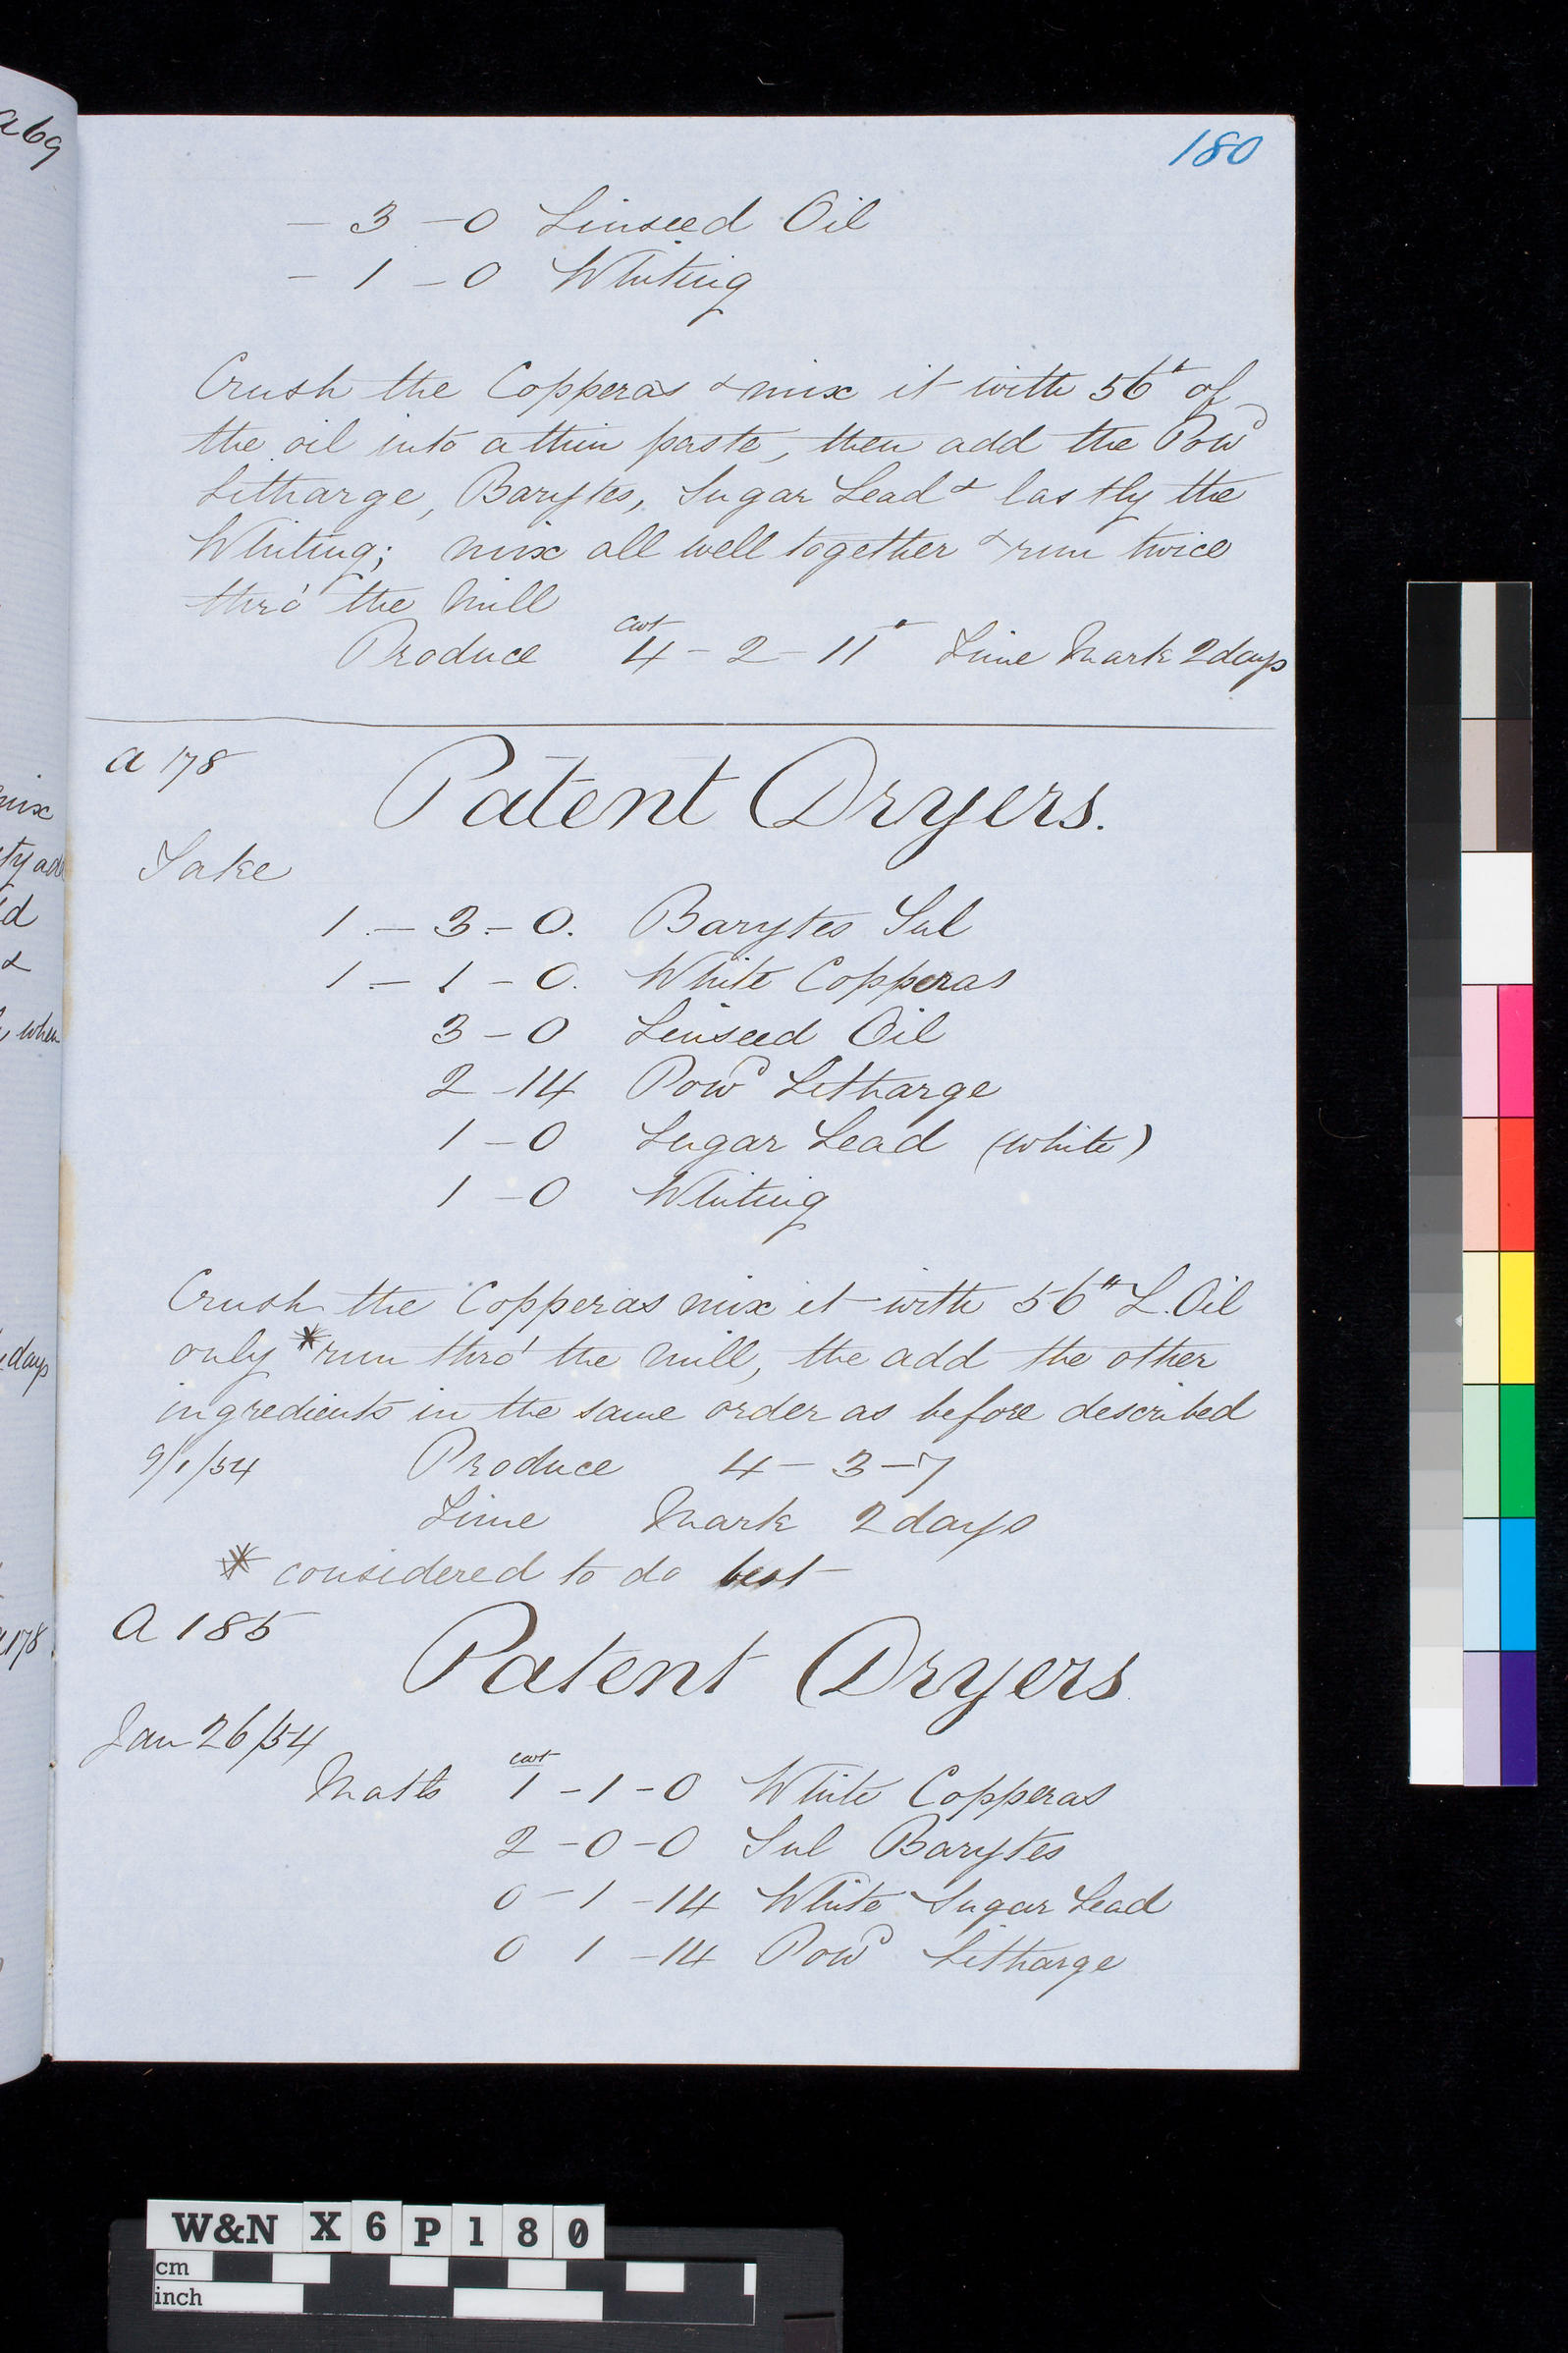 180
a69
– 3 – 0 Linseed Oil
– 1 – 0 Whiting
Crush the Copperas & mix it with 56 of
the oil into a thin paste, then add the Powd
Litharge, Barytes, Sugar Lead & lastly the
Whiting; mix all well together & run twice
thro' the Mill
Produce cwt 4 – 2 – 11 Time Mark 2 days
a 178
Patent Dryers.
Take
1 – 3 – 0. Barytes Sul
1 – 1 – 0. White Copperas
3 – 0 Linseed Oil
2 – 14 Powd Litharge
1 – 0 Sugar Lead (white)
1 – 0 Whiting
Crush the Copperas mix it with 56" L. Oil
only * run thro' the Mill, the add the other
ingredients in the same order as before described
9/1/54 Produce 4 – 3 – 7
Time Mark 2 days
* considered to do best
a 185
Patent Dryers
Jan 26/54
Matls cwt 1 – 1 – 0 White Copperas
2 – 0 – 0 Sul Barytes
0 – 1 – 14 White Sugar Lead
0 1 – 14 Powd Litharge
mix
ty add
d
&
when
days
a178
W&N X6P180
cm
inch